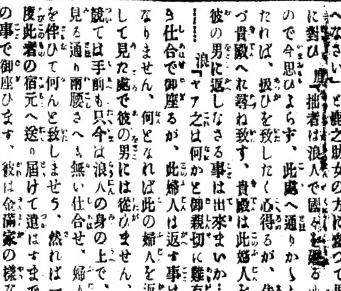 へなさい」と鹿之助女の方に
に對ひ 鹿「拙者は浪人で國
ので今思ひよらず、此處へ通りか
たれば、扱ひを致したく心得るが、
づ貴殿へお尋ね致す、貴殿は此婦人を
彼の男に返しなさる事は出來まいか…
浪「ヤア之は何かと御親切に
仕合で御座るが、此婦人は返す事は
なりません、何となれば此の婦人を返
して見た處で彼の男には從ひません、
競ては手前も只今は浪人の身の上で、
見る通り兩腰さへも無い仕合せ、婦
を伴ひて何んと致しませう 然れば一
度此者の宿元へ送り屆けて遣はすまで
の事で御座ひます、彼は金滿家の樣な